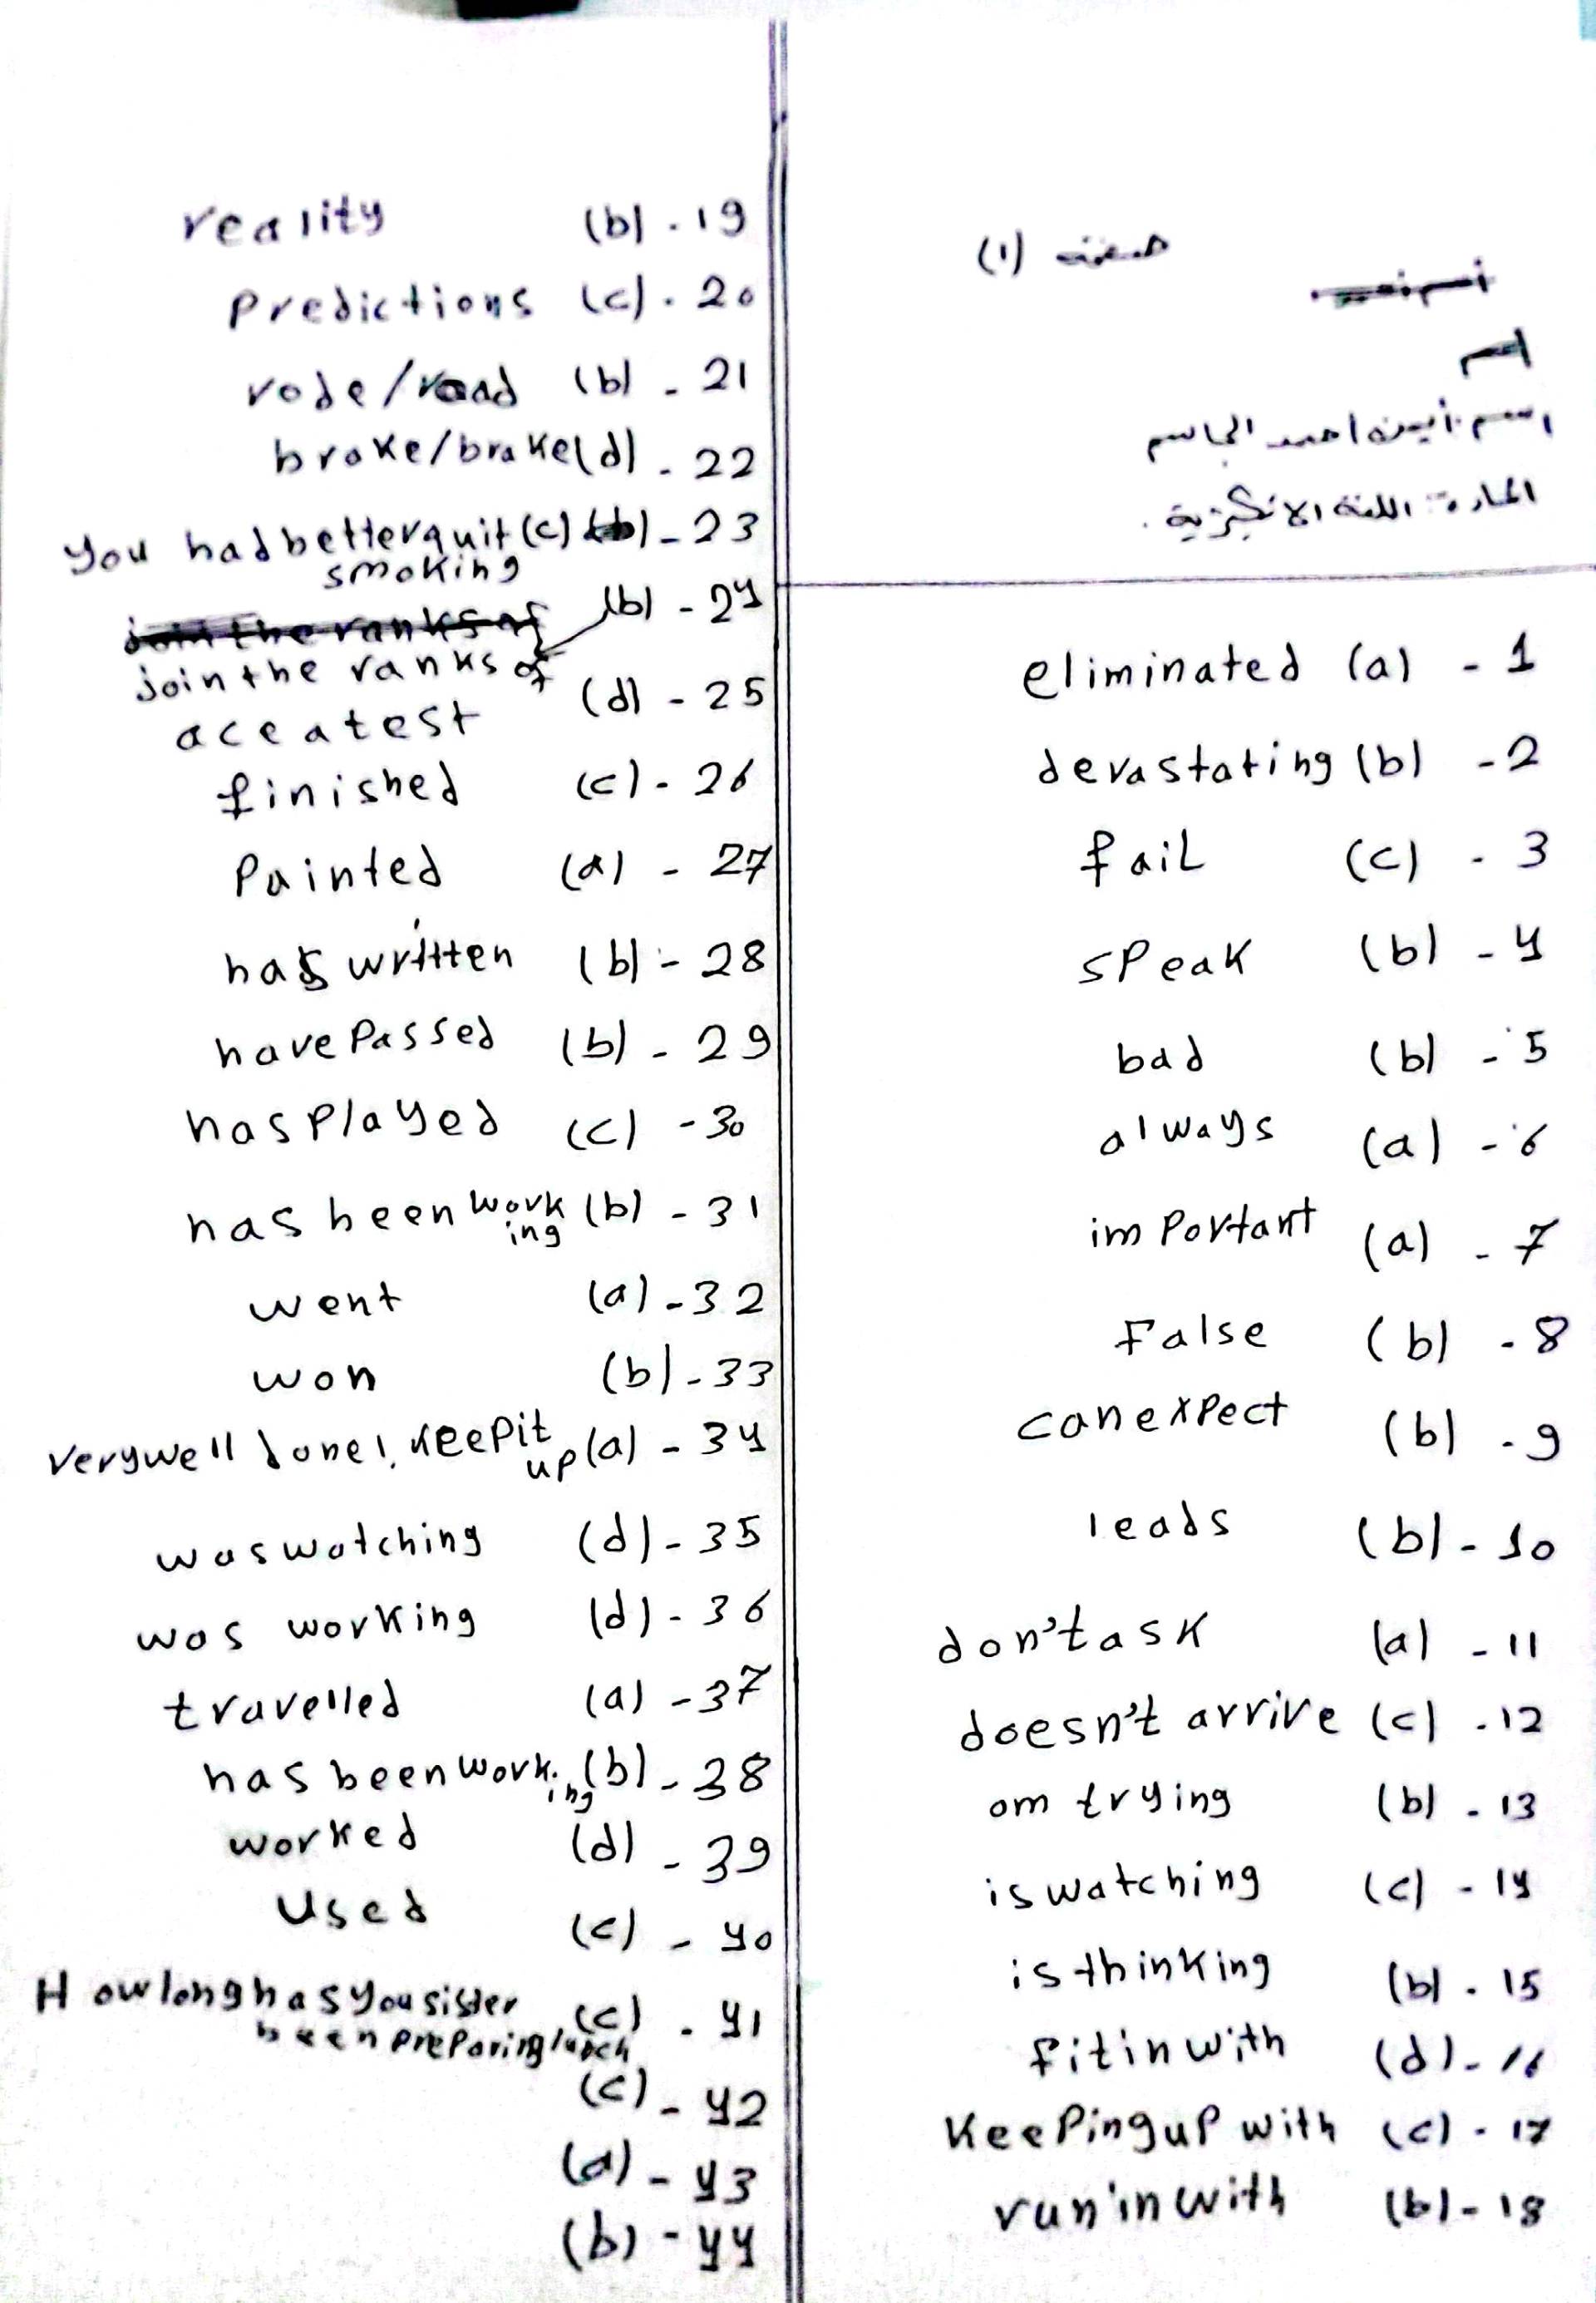 صفحة (١)
اسم
اسم: أيمن احمد الجاسم
المادة: اللغة الانكليزية.
eliminated (a) - 1
devastating (b) - 2
fail (c) - 3
speak (b) - 4
bad (b) - 5
always (a) - 6
important (a) - 7
False (b) - 8
can expect (b) - 9
leads (b) - 10
don't ask (a) - 11
doesn't arrive (c) - 12
am trying (b) - 13
is watching (c) - 14
is thinking (b) - 15
fit in with (d) - 16
Keeping up with (c) - 17
run in with (b) - 18
reality (b) - 19
Predictions (c) - 20
rode/road (b) - 21
broke/brake (d) - 22
you had better quit (c) - 23
smoking
(b) - 24
join the ranks of
ace a test (d) - 25
finished (c) - 26
Painted (a) - 27
has written (b) - 28
have Passed (b) - 29
has Played (c) - 30
has been work (b) - 31
ing
went (a) - 32
won (b) - 33
very well done!, Keep it
up (a) - 34
was watching (d) - 35
was working (d) - 36
travelled (a) - 37
has been work (b) - 38
ing
worked (d) - 39
Used (c) - 40
How long has you sister (c) - 41
been preparing lunch
(c) - 42
(a) - 43
(b) - 44